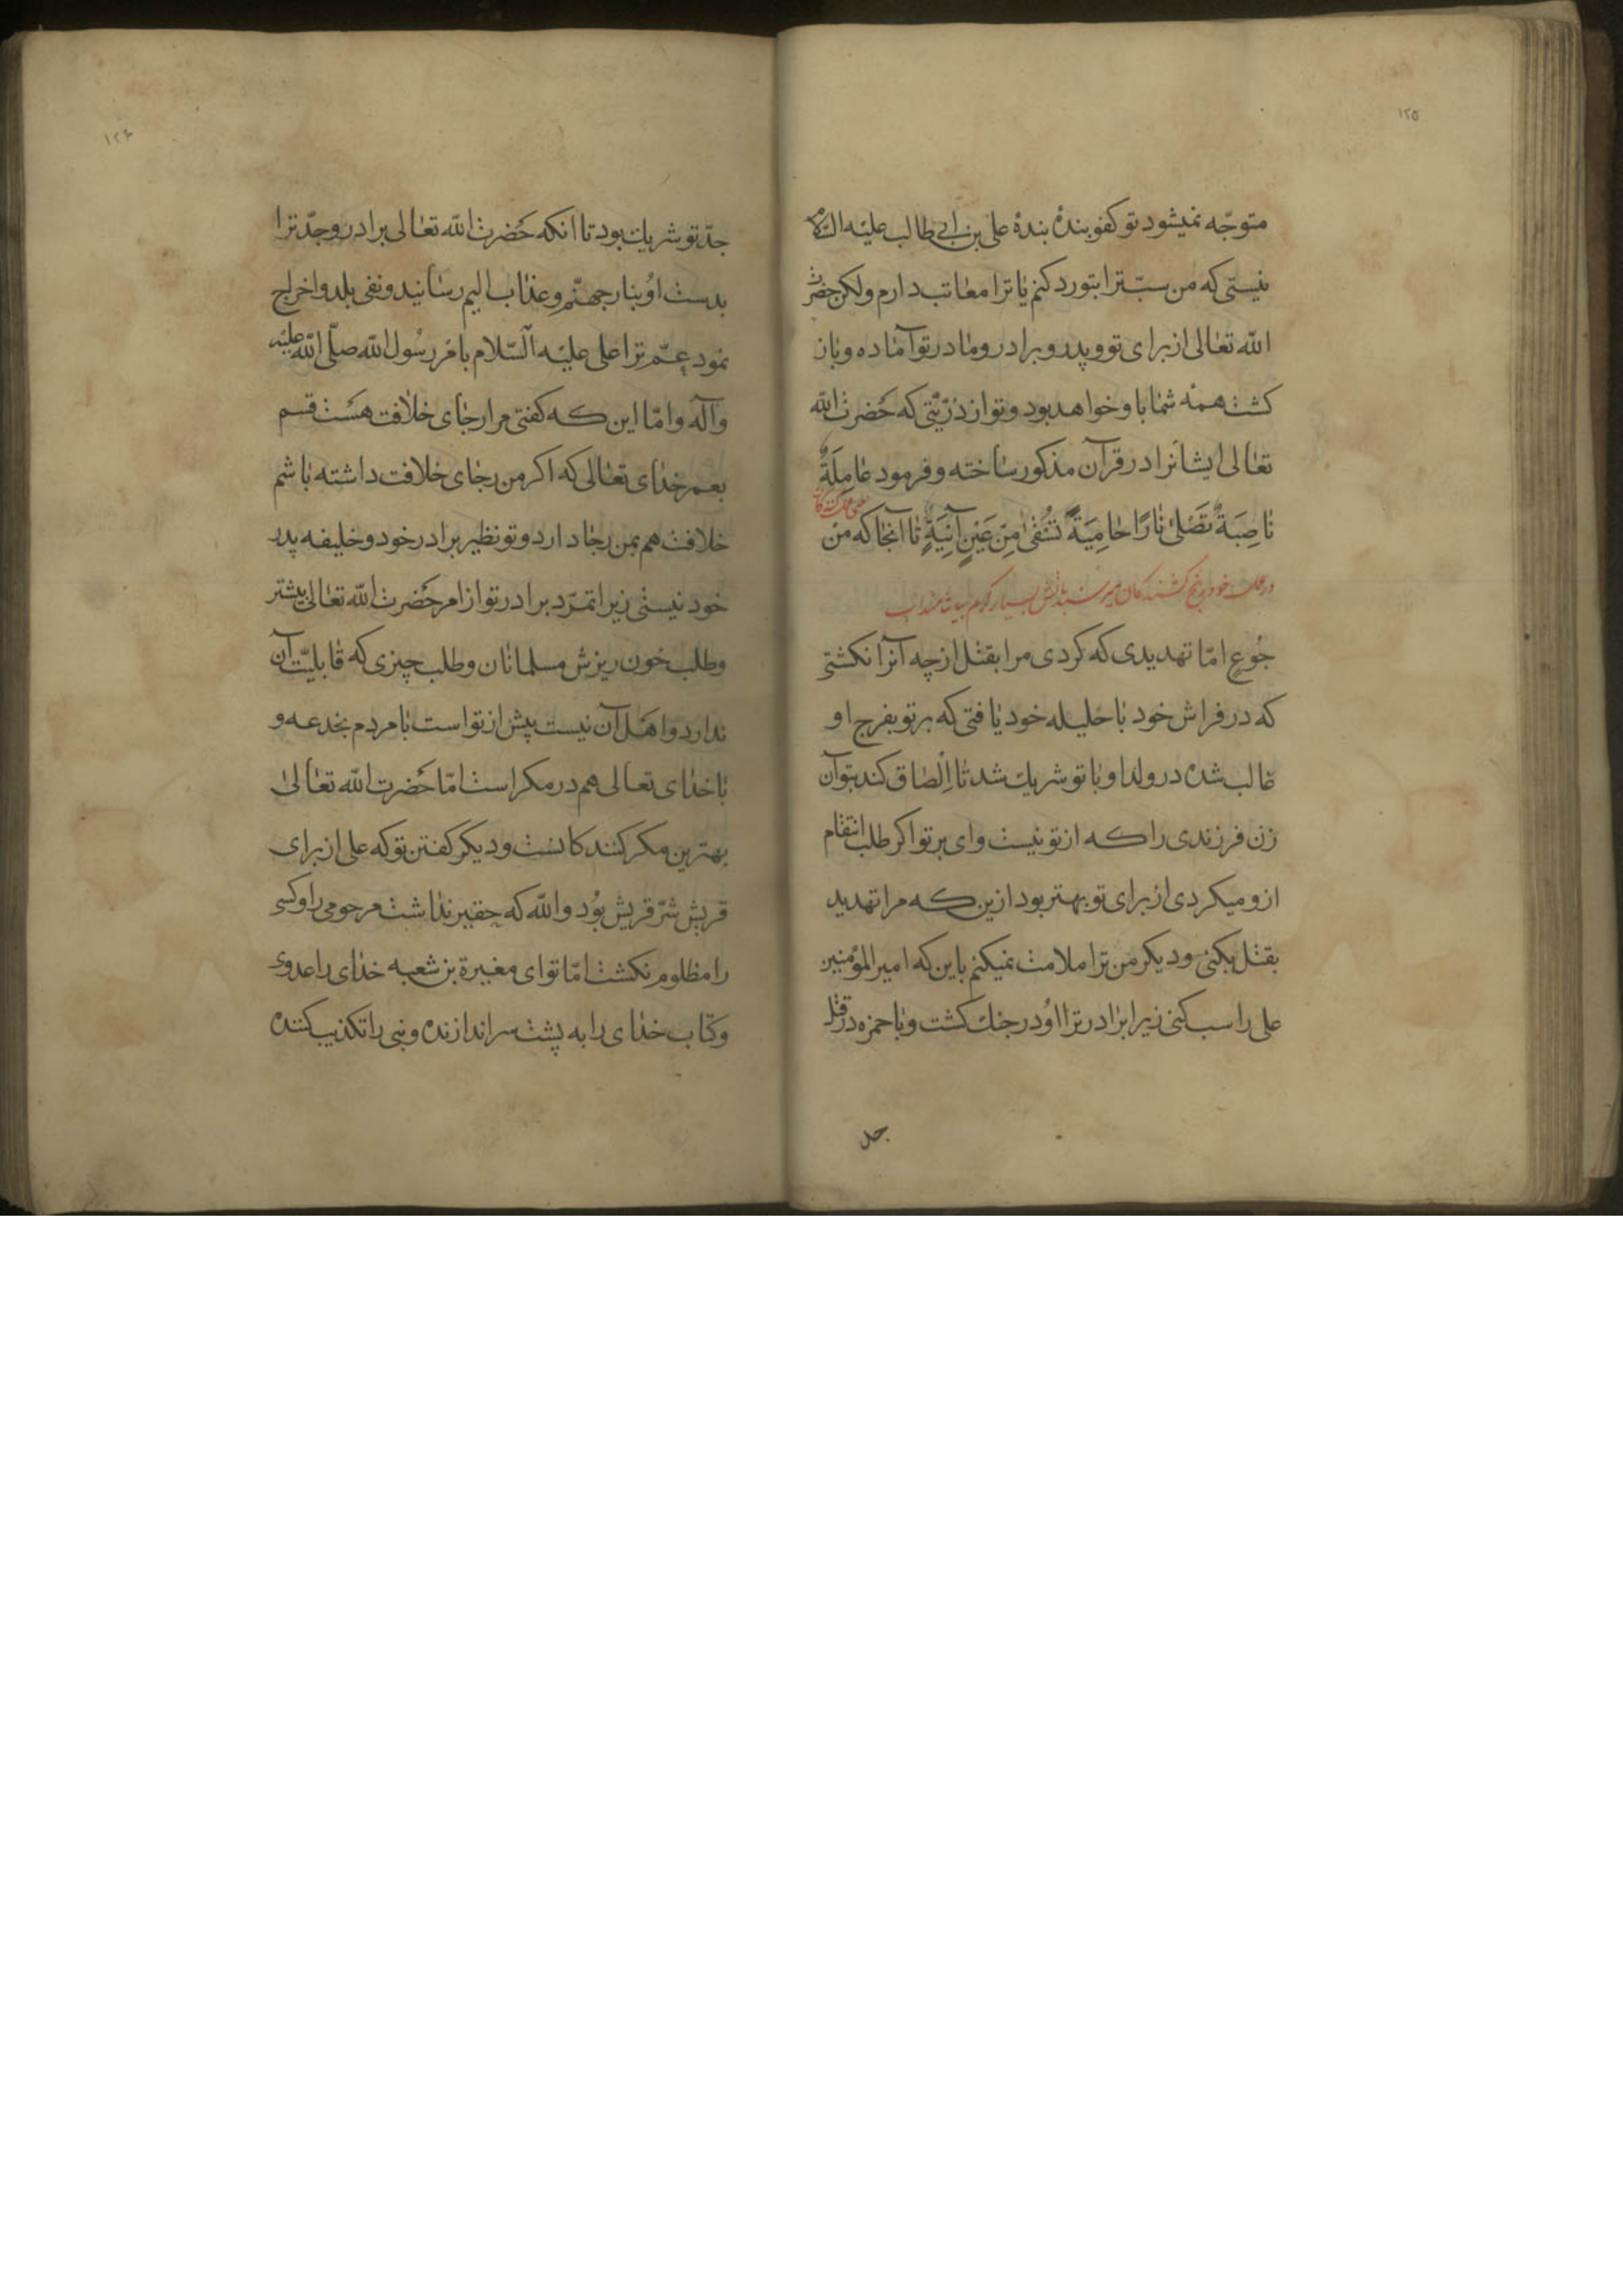 ١٢٥
متوجّه نمیشود تو کفو بندهٔ بندهٔ علی بن ابی طالب علیه السّلام
نیستی که من سبّ ترا بتو رد کنم یا ترا معاتب دارم ولکن حضرت
الله تعالی از برای تو و پدر و برادر و مادر تو آماده و باز
کشت همهٔ شما با و خواهد بود و تو از ذرّیّتی که حضرت الله
تعالی ایشانرا در قرآن مذکور ساخته و فرمود عَامِلَةٌ
نَاصِبَةٌ تَصْلَیٰ نَارًا حَامِیَةً تُسْقَیٰ مِنْ عَیْنٍ آنِیَةٍ تا آنجا که مِنْ
جُوعٍ امّا تهدیدی که کردی مرا بقتل از چه آنرا نکشتی
که در فراش خود با حلیله خود یافتی که بر تو بفرج او
غالب شده در ولد او با تو شریك شد تا اِلْصاق کند بتو آن
زن فرزندی را که از تو نیست وای بر تو اکر طلب انتقام
از و میکردی از برای تو بهتر بود ازین که مرا تهدید
بقتل بکنی و دیکر من ترا ملامت نمیکنم باین که امیر المؤمنین
علی را سب کنی زیرا برادر ترا اوُ در جنك کشت و با حمزه در قتل
جد
١٢٦
جدّ تو شریك بود تا انکه حَضرت الله تعالی برادر و جدّ ترا
بدست اوُ بنار جهنّم و عذاب الیم رسانید و نفی بلد و اخراج
نمود عمّ ترا علی علیه السّلام بامر رسُول الله صلّی الله علیه
و آله و امّا این که کفتی مرا رجای خلافت هست قسم
بعمر خدای تعالی که اکر من رجای خلافت داشته باشم
خلافت هم بمن رجا دارد و تو نظیر برادر خود و خلیفه پدر
خود نیستی زیرا تمرّد برادر تو از امر حَضرت الله تعالی بیشتر
و طلب خون ریزش مسلمانان و طلب چیزی که قابلیّت آن
ندارد و اهل آن نیست پیش از تو است با مردم بخدعه و
با خدای تعالی هم در مکر است امّا حَضرت الله تعالیٰ
بهترین مکر کنندکانست و دیکر کفتن تو که علی از برای
قریش شرّ قریش بوُد و الله که حقیر نداشت مرحومی را و کسی
را مظلوم نکشت امّا تو ای مغیرة بن شعبه خدای را عدوی
و کتاب خدای را به پشت سر اندازنده و نبی را تکذیب کننده